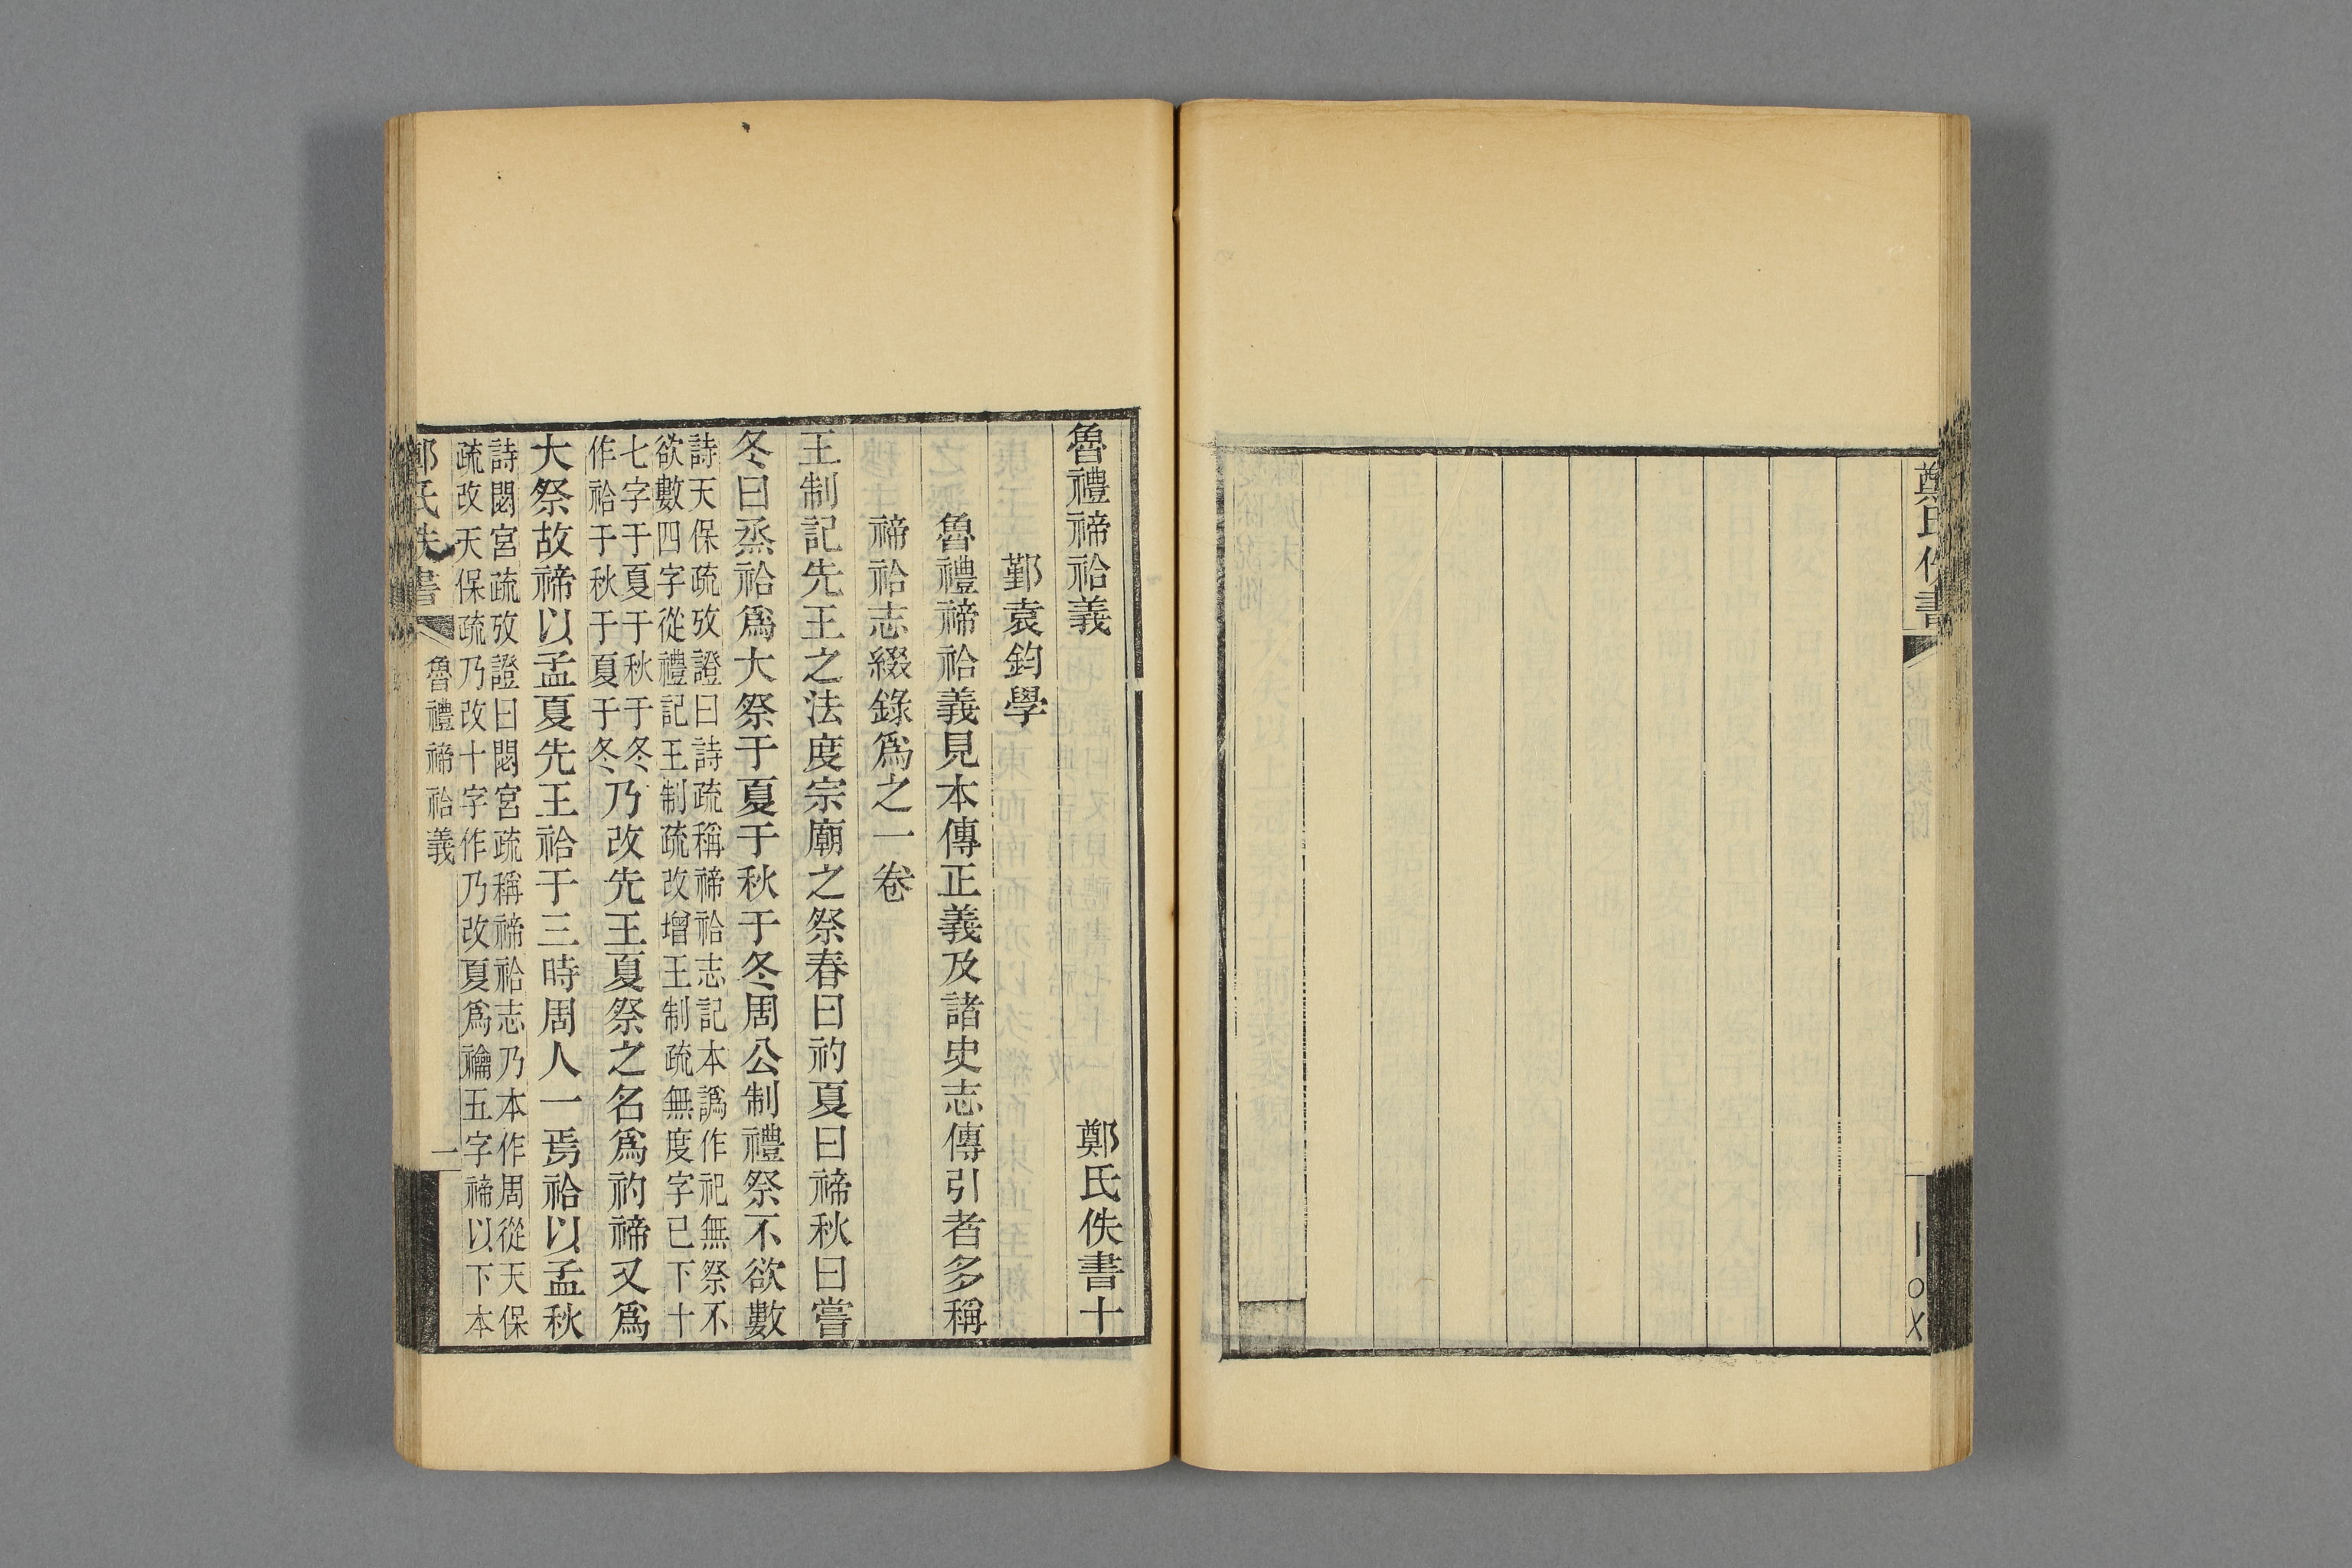 魯禮禘祫義 鄭氏佚書十
鄞袁鈞學
魯禮禘祫義見本傳正義及諸史志傳引者多稱
禘祫志綴錄爲之一卷
王制記先王之法度宗廟之祭春曰礿夏曰禘秋曰嘗
冬曰烝祫爲大祭于夏于秋于冬周公制禮祭不欲數
詩天保疏攷證曰詩疏稱禘祫志記本譌作祀無祭不
欲數四字從禮記王制疏改增王制疏無度字已下十
七字于夏于秋于冬
作祫于秋于夏于冬
乃改先王夏祭之名爲礿禘又爲
大祭故禘以孟夏先王祫于三時周人一焉祫以孟秋
詩閟宮疏攷證曰閟宮疏稱禘祫志乃本作周從天保
疏改天保疏乃改十字作乃改夏爲禴五字禘以下本
魯禮禘祫義
一
鄭氏佚書